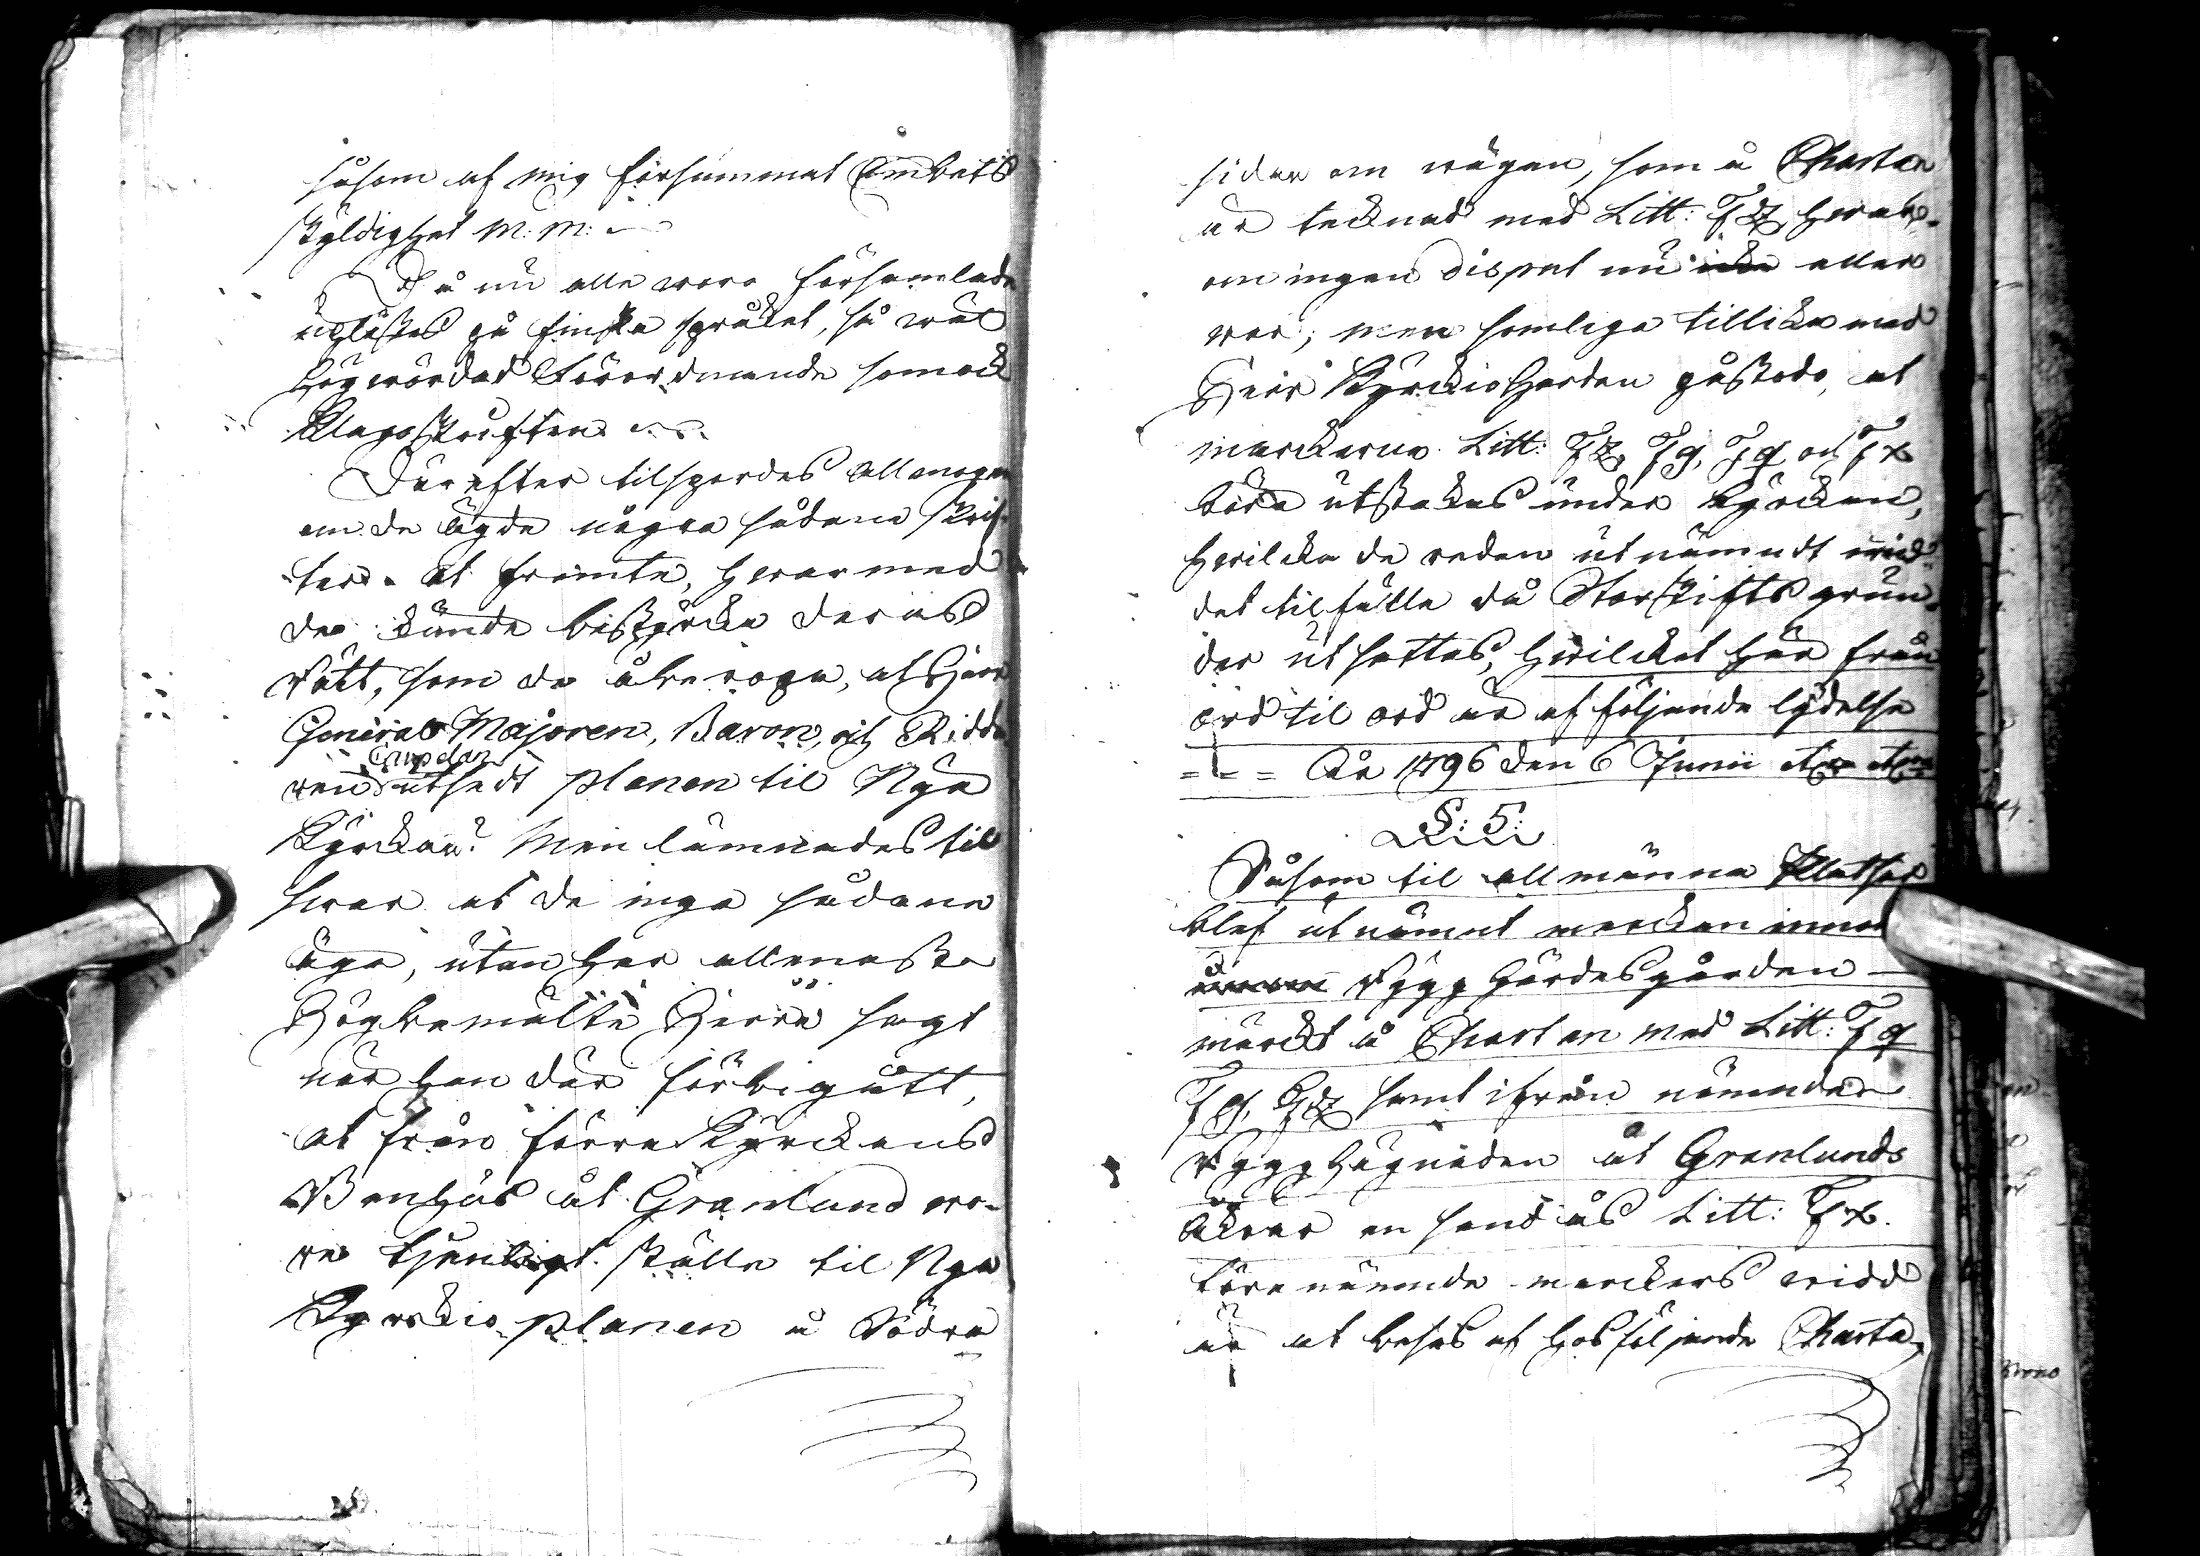 såsom af mig försummat Embets
skyldighet m: m:
Då nu alla woro församlade
uplästes på finska språket, så wäl
Högwördad Förordnande som ock
Klagoskriften
Därefter tilspordes allmogen
om de ägde några sådane skrif-
ter at framte, hwarmed
de kunde bestyrka deras
sått, som de åberopa, at Herr
General Majoren, Baron, och Ridda
ren utsedt planen til Nya
Kyrckan? Men lämnades til
swar at de inga sådane
äga, utan har allenast
Högbemälte Herre sagt
när han där förbigått,
at från förra Kyrckans
Benhus åt Granlund wo-
re tjenligt ställe til Nya
Kyrckio planen å Södra
sidan om wägen, som å Chartan
är tecknad med Litt: hwar-
om ingen disput nu eller
war; men somliga tillika med
Herr Kyrckioherden påstodo, at
marckerna Litt: Tz, Tg, Tq och Tx
böra utstakas under Kyrckan,
hwilcka de redan utnämndt wid
det tilfälle då Storskifts grun-
der utsattes, hwilcket här från
ord til ord är af följande lydelse
= = = År 1796 den 6 Junii
§: 5:
Såsom til allmänna Platser
blef utnämnt marcken innom
Bygg Gärdesgården
märckt å Chartan med Litt: Tq
Tg, Tz samt ifrån nämnde
Bygg Hägnaden åt Granlunds
åkrar en sand ås Litt: Tx.
Förenämnde marckers widd
är at beses af hosföljande Charta,